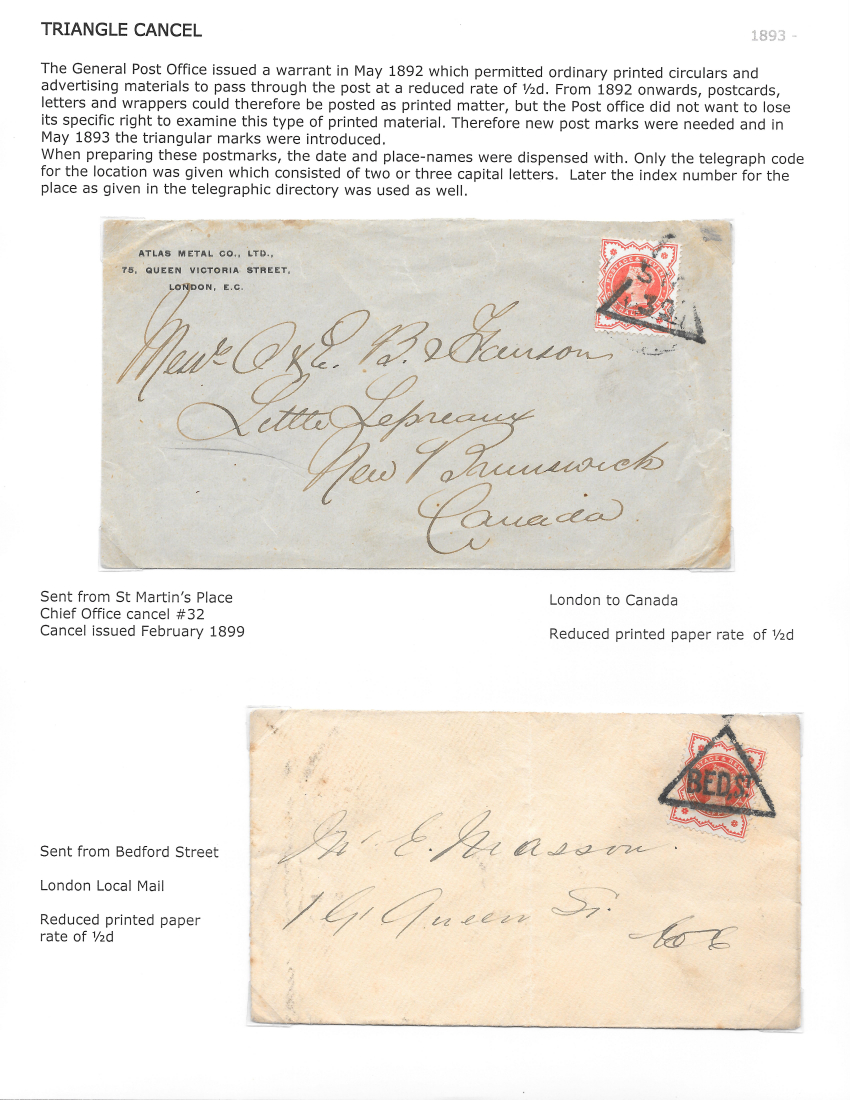 TRIANGLE CANCEL
1893 -
The General Post Office issued a warrant in May 1892 which permitted ordinary printed circulars and
advertising materials to pass through the post at a reduced rate of ½d. From 1892 onwards, postcards,
letters and wrappers could therefore be posted as printed matter, but the Post office did not want to lose
its specific right to examine this type of printed material. Therefore new post marks were needed and in
May 1893 the triangular marks were introduced.
When preparing these postmarks, the date and place-names were dispensed with. Only the telegraph code
for the location was given which consisted of two or three capital letters.  Later the index number for the
place as given in the telegraphic directory was used as well.
ATLAS METAL CO., LTD.,
75, QUEEN VICTORIA STREET,
LONDON, E.C.
Messrs C & E. B. Hanson
Little Lepreaux
New Brunswick
Canada
Sent from St Martin's Place
Chief Office cancel #32
Cancel issued February 1899
London to Canada
Reduced printed paper rate  of ½d
BED.ST
Mr E. Masson.
Queen St.
WC
Sent from Bedford Street
London Local Mail
Reduced printed paper
rate of ½d